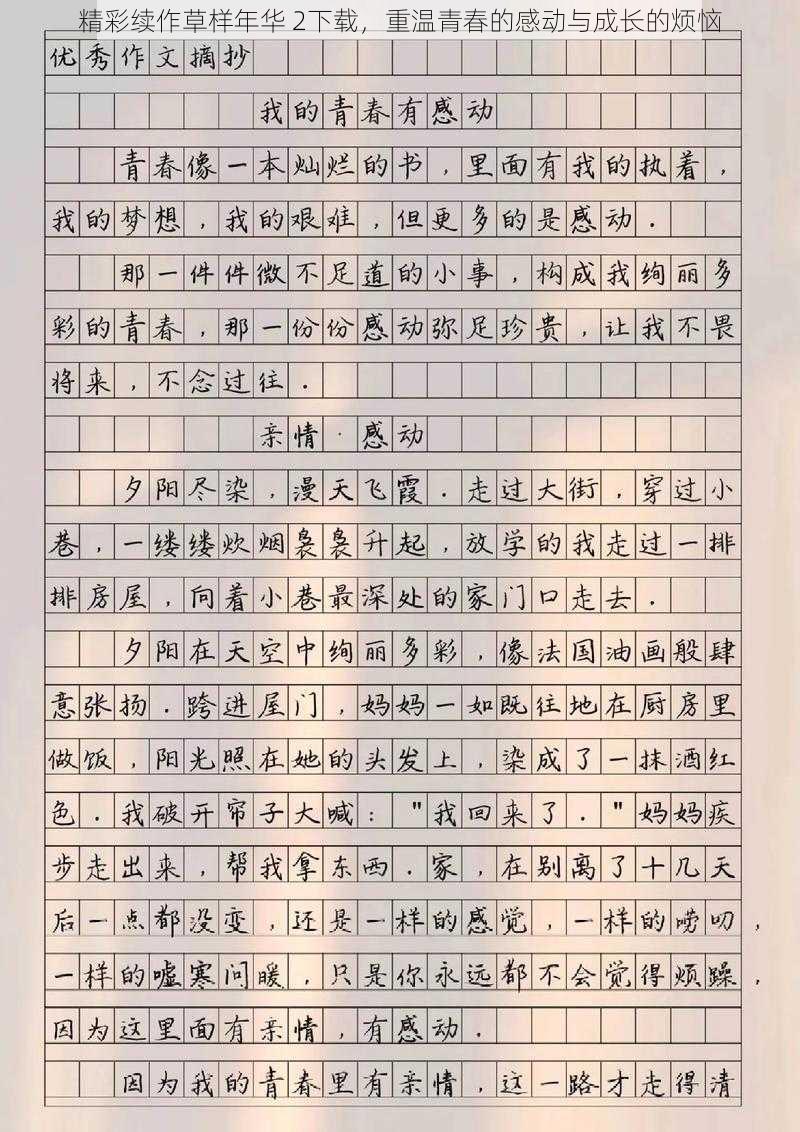 精彩续作草样年华 2下载，重温青春的感动与成长的烦恼
优秀作文摘抄
我的青春有感动
青春像一本灿烂的书，里面有我的执着，
我的梦想，我的艰难，但更多的是感动．
那一件件微不足道的小事，构成我绚丽多
彩的青春，那一份份感动弥足珍贵，让我不畏
将来，不念过往．
亲情·感动
夕阳尽染，漫天飞霞．走过大街，穿过小
巷，一缕缕炊烟袅袅升起，放学的我走过一排
排房屋，向着小巷最深处的家门口走去．
夕阳在天空中绚丽多彩，像法国油画般肆
意张扬．跨进屋门，妈妈一如既往地在厨房里
做饭，阳光照在她的头发上，染成了一抹酒红
色．我破开帘子大喊："我回来了．"妈妈疾
步走出来，帮我拿东西．家，在别离了十几天
后一点都没变，还是一样的感觉，一样的唠叨，
一样的嘘寒问暖，只是你永远都不会觉得烦躁，
因为这里面有亲情，有感动．
因为我的青春里有亲情，这一路才走得清